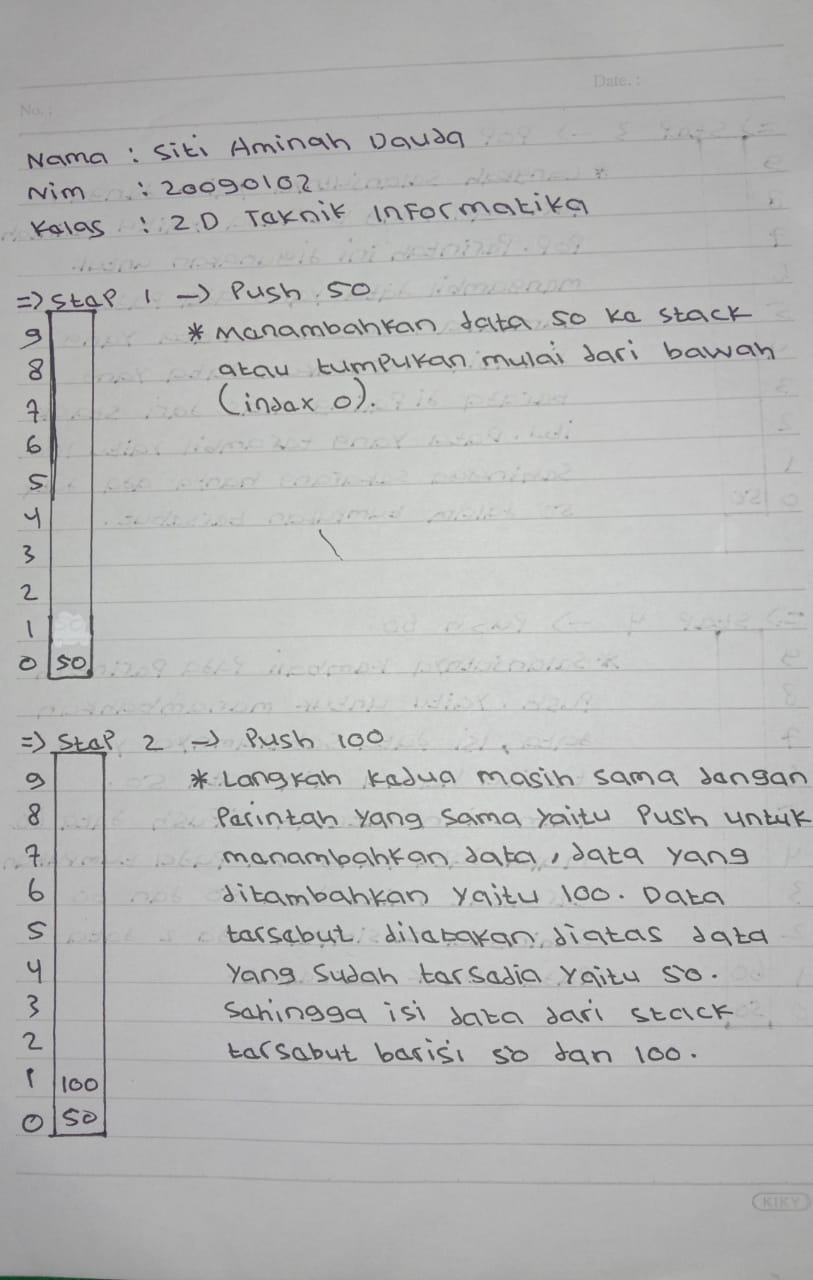 No. :
Date. :
Nama : Siti Aminah Dauda
Nim : 20090102
Kelas : 2.D Teknik Informatika
=> Step 1 -> Push 50
* Menambahkan data 50 ke stack
atau tumpukan mulai dari bawah
(index 0).
9
8
7
6
5
4
3
2
1
0 50
=> Step 2 -> Push 100
* Langkah kedua masih sama dengan
Perintah yang sama yaitu Push untuk
menambahkan data, data yang
ditambahkan yaitu 100. Data
tersebut diletakan diatas data
yang sudah tersedia yaitu 50.
Sehingga isi data dari stack
tersebut berisi 50 dan 100.
9
8
7
6
5
4
3
2
1 100
0 50
KIKY